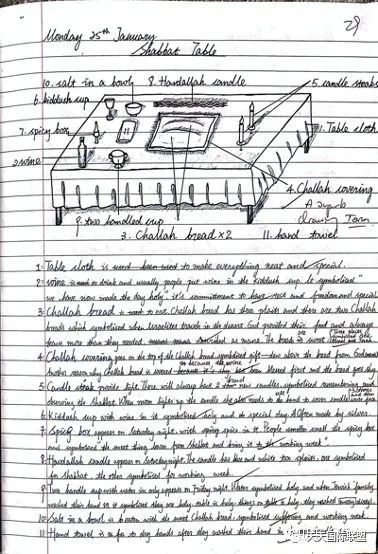 29
Monday 25th January
Shabbat Table
10. salt in a bowl 8. Havdallah candle
5. candle steaks
6. kiddush cup
7. spicy box
1. Table cloth
2. wine
4. Challah covering
9. two handled cup
3. Challah bread x2
11. hand towel
1 Table cloth is used to make everything neat and special.
2 wine is used to drink and usually people put wine in the kiddush cup. It symbolised "
we have now made the day holy". it's commitment to have rest and freedom and special
3 Challah bread is used to eat. Challah bread has three plaits and there are two Challah
breads which symbolised when Israelites travels in the desert God provided their food and always
gave more than they needed, known as mana. The bread is sweet
4 Challah covering goes on the top of the Challah bread symbolised gift
Another reason why Challah bread is covered because wine has been blessed first and the bread
5 Candle steak provide light. There will always have 2 candles symbolised remembering and
observing the Shabbat. When mom lights up the candle she
6 Kiddush cup with wine in it symbolised holy and the special day. Often made by silver.
7 Spicy box appears on Saturday night with spicy spice in it. People smell the spicy box
and symbolised the sweet thing from Shabbat and bring it to the working week".
8 Havdallah candle appears on Saturday night. The candle has blue and white plaits. one symbolised
for Shabbat, the other symbolised for working week
9 Two handle cup with water in only appears on Friday night. Water symbolised holy and when Jewish family
washed their hand in it symbolised they are holy
10 Salt in a bowl is eaten with the meat Challah bread. symbolised suffering and working week.
11 Hand towel is for to dry hands after they washed their hand in